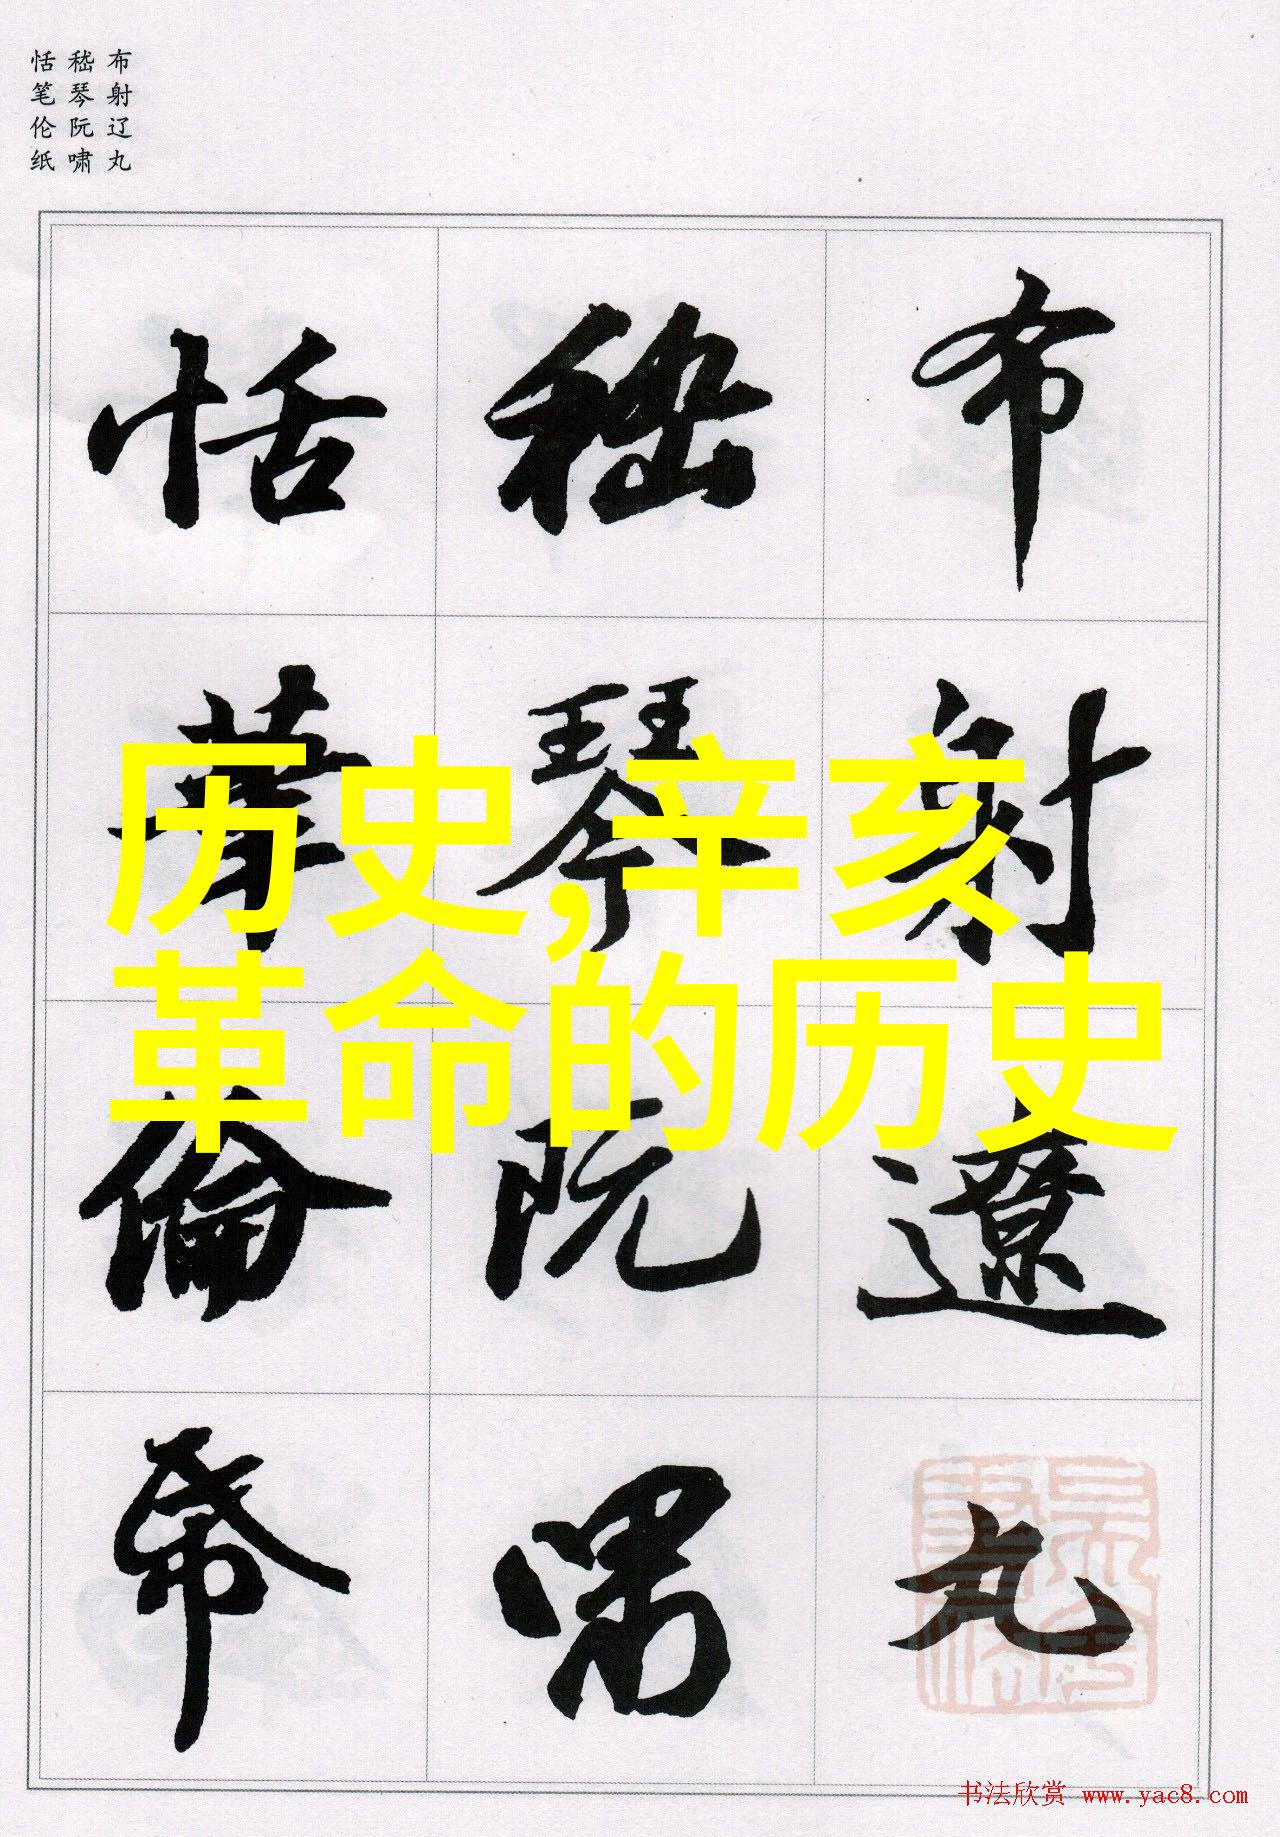 布射辽丸
嵇琴阮啸
恬笔伦纸
布射遼丸
嵇琴阮嘯
恬筆倫帋
历史,辛亥
革命的历史
书法欣赏 www.yac8.com